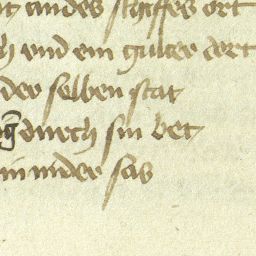 andes schiffes ort
vnd ein guter dort
der selben stat
durch sin bet
nider sas